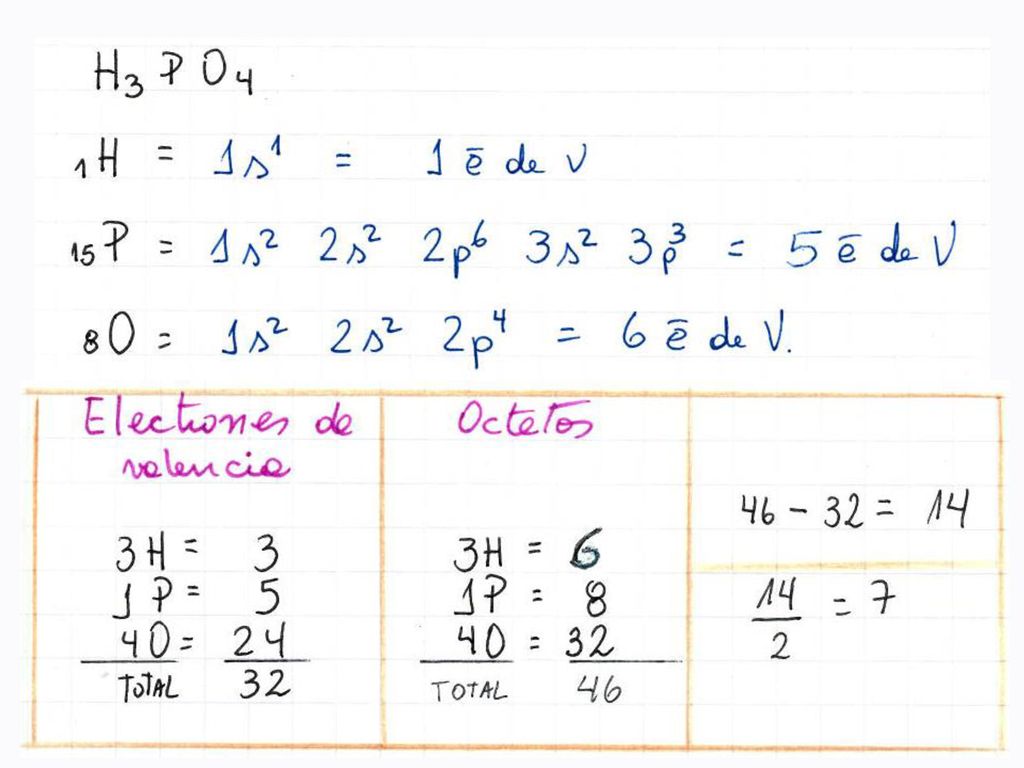 H₃PO₄
₁H = 1s¹ = 1 ē de V
₁₅P = 1s² 2s² 2p⁶ 3s² 3p³ = 5 ē de V
₈O = 1s² 2s² 2p⁴ = 6 ē de V.
Electrones de
valencia
3H = 3
1P = 5
4O = 24
TOTAL 32
Octetos
3H = 6
1P = 8
4O = 32
TOTAL 46
46 - 32 = 14
14/2 = 7